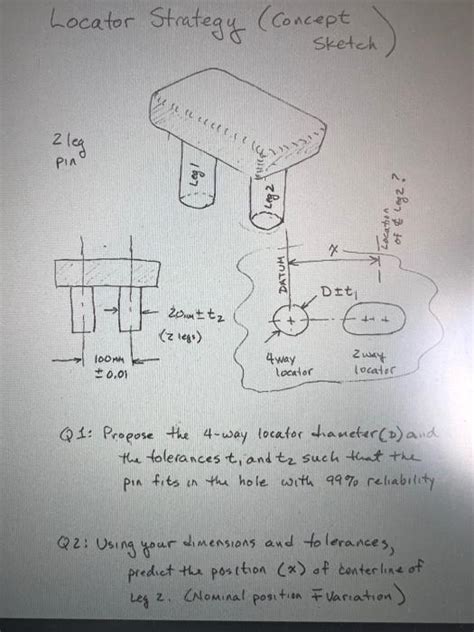 Locator Strategy (Concept
Sketch)
2 leg
pin
Leg 1
Leg 2
Location
of ℄ Leg 2?
x
DATUM
D±t₁
20mm ± t₂
(2 legs)
100mm
± 0.01
4 way
locator
2 way
locator
Q1: Propose the 4-way locator diameter (D) and
the tolerances t₁ and t₂ such that the
pin fits in the hole with 99% reliability
Q2: Using your dimensions and tolerances,
predict the position (x) of centerline of
Leg 2. (Nominal position ∓ Variation)